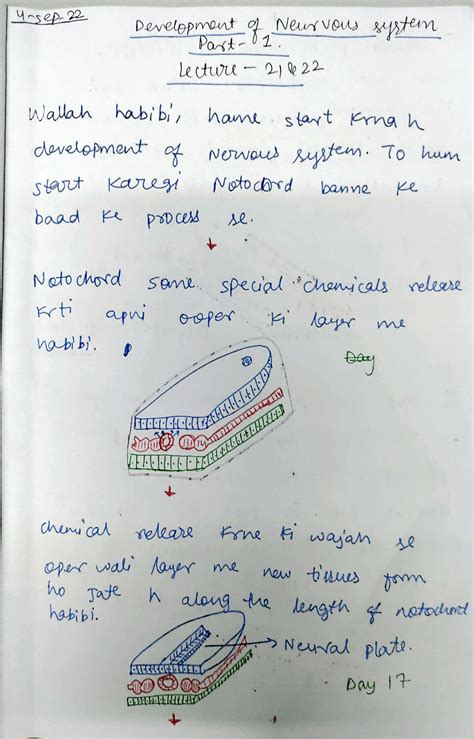 4-sep-22
Development of Neurvous system
Part-1.
Lecture - 21 & 22
Wallah habibi, hame start krna h
development of nervous system. To hum
start karegi Notochord banne ke
baad ke process se.
Notochord some special chemicals release
krti apni ooper ki layer me
habibi.
Day
chemical release krne ki wajah se
oper wali layer me new tissues form
ho jate h along the length of notochord
habibi.
Neural plate.
Day 17